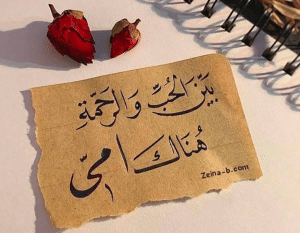 بَيْنَ الحُبِّ وَالرَحْمَةِ
هُنَاكَ امِّي
Zeina-b.com